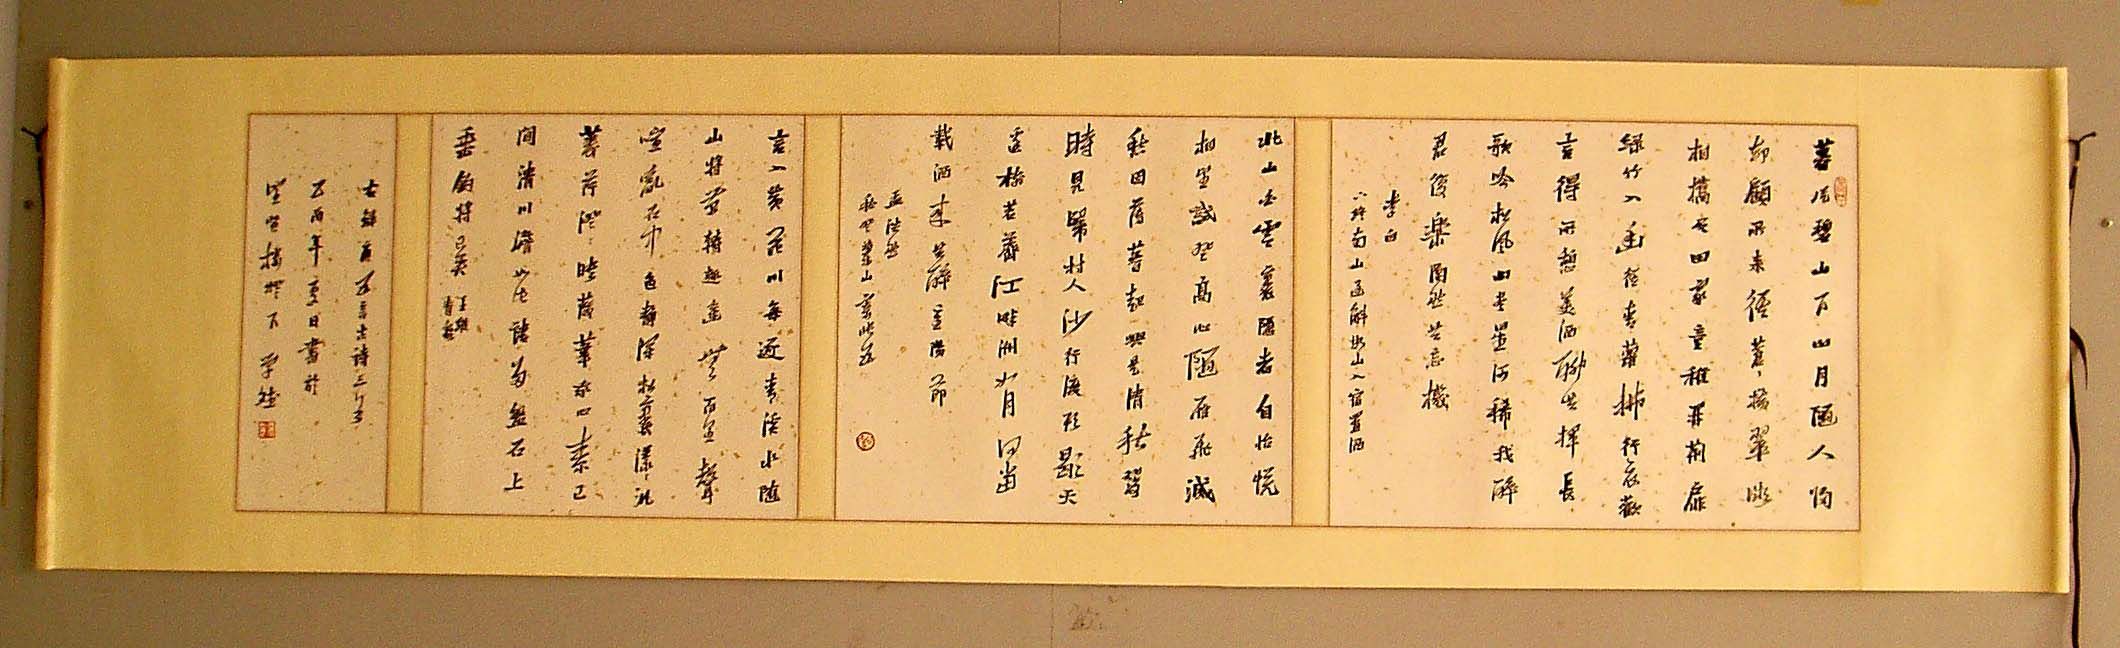 暮從碧山下山月隨人歸
却顧所來徑蒼〻橫翠微
相攜及田家童稚開荊扉
綠竹入幽徑青蘿拂行衣歡
言得所憩美酒聊共揮長
歌吟松風曲盡星河稀我醉
君復樂陶然共忘機
李白
下終南山過斛斯山人宿置酒
北山白雲裏隱者自怡悅
相望試登高心隨雁飛滅
愁因薄暮起興是清秋發
時見歸村人沙行渡頭歇天
邊樹若薺江畔洲如月何當
載酒來共醉重陽節
孟浩然
秋登蘭山寄張五
言入黃花川每逐青溪水隨
山將萬轉趣途無百里聲
喧亂石中色靜深松裏漾〻汎
菱荇澄〻映葭葦我心素已
閒清川澹如此請留盤石上
垂釣將已矣
王維
青溪
古詩三首
乙酉年夏日書於
樓燈下